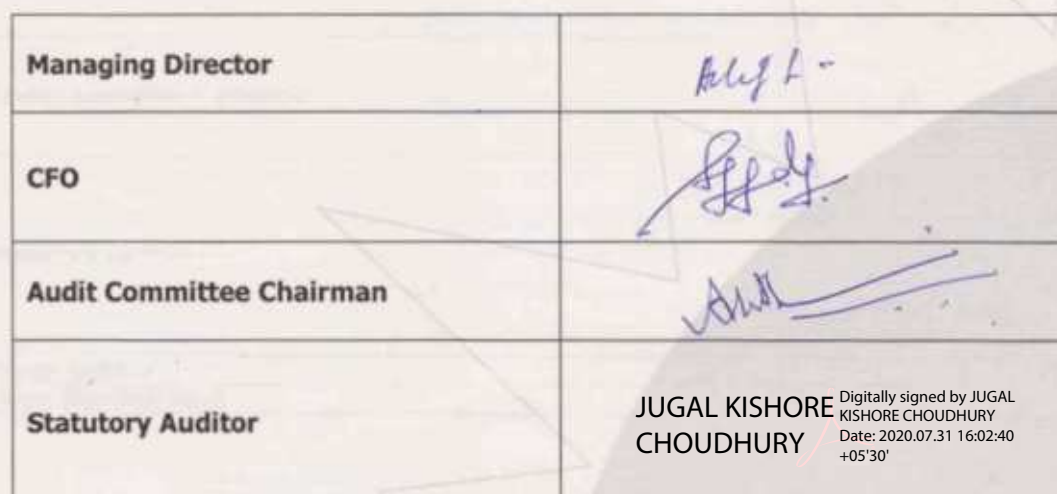 Managing Director
CFO
Audit Committee Chairman
Statutory Auditor
JUGAL KISHORE
CHOUDHURY
Digitally signed by JUGAL
KISHORE CHOUDHURY
Date: 2020.07.31 16:02:40
+05'30'